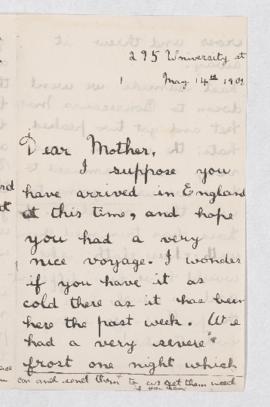 295 University st
May 14th 190
Dear Mother,
I suppose you
have arrived in England
at this time, and hope
you had a very
nice voyage. I wonder
if you have it as
cold there as it has been
here the past week. We
had a very severe
frost one night which
can and send them to us get them next